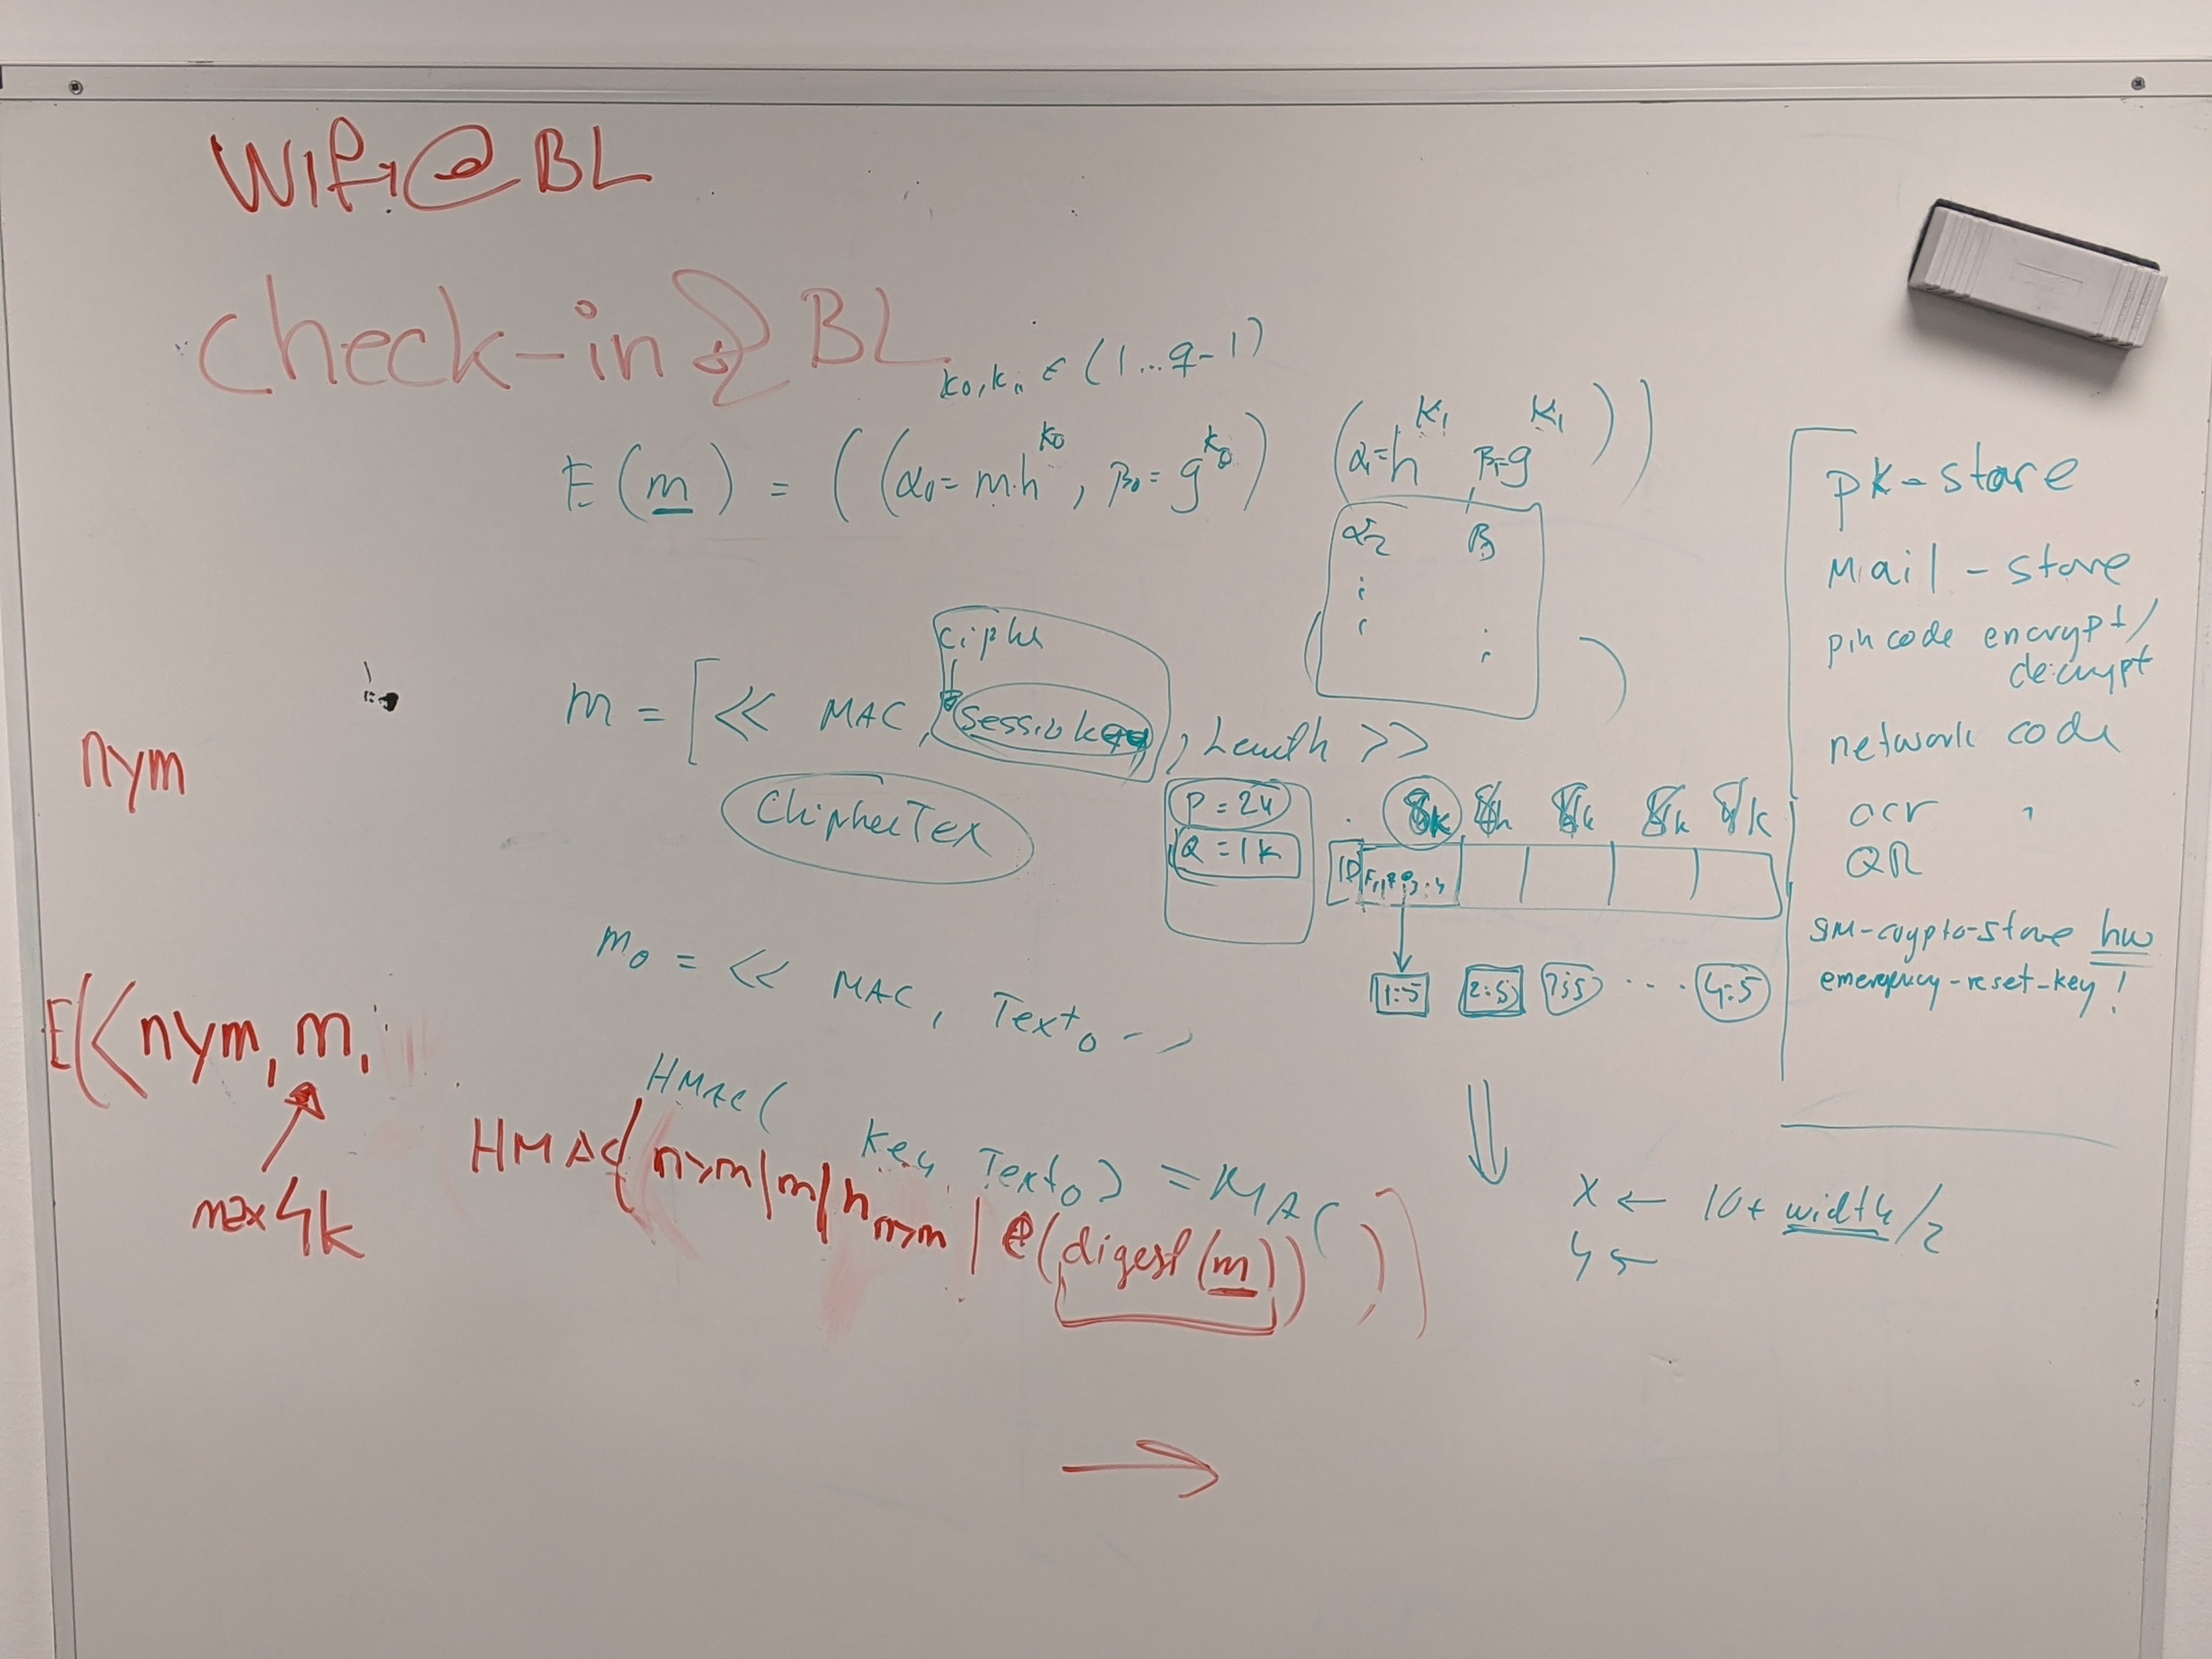 WIFI@BL
check-in @ BL
k₀, k₁ ∈ (1...q-1)
E(m) = ((α₀=m·h^k₀, β₀=g^k₀) (α₁=h^k₁, β₁=g^k₁))
α₂ β
m = [<< MAC, Sessionkey, Length >>
ChipherTex
P = 2k
Q = 1k
ID
1:5 2:5 ... 4:5
m₀ = << MAC, Text₀
HMAC(
Key, Text₀) = MAC
nym
E(<nym, m,
max 4k
HMAC(nym|m|h nym | e(digest(m)))]
x ← 10+ width/2
y ←
pk-store
Mail-store
pin code encrypt/
decrypt
network code
ocr
QR
SIM-crypto-store hw
emergency-reset-key!